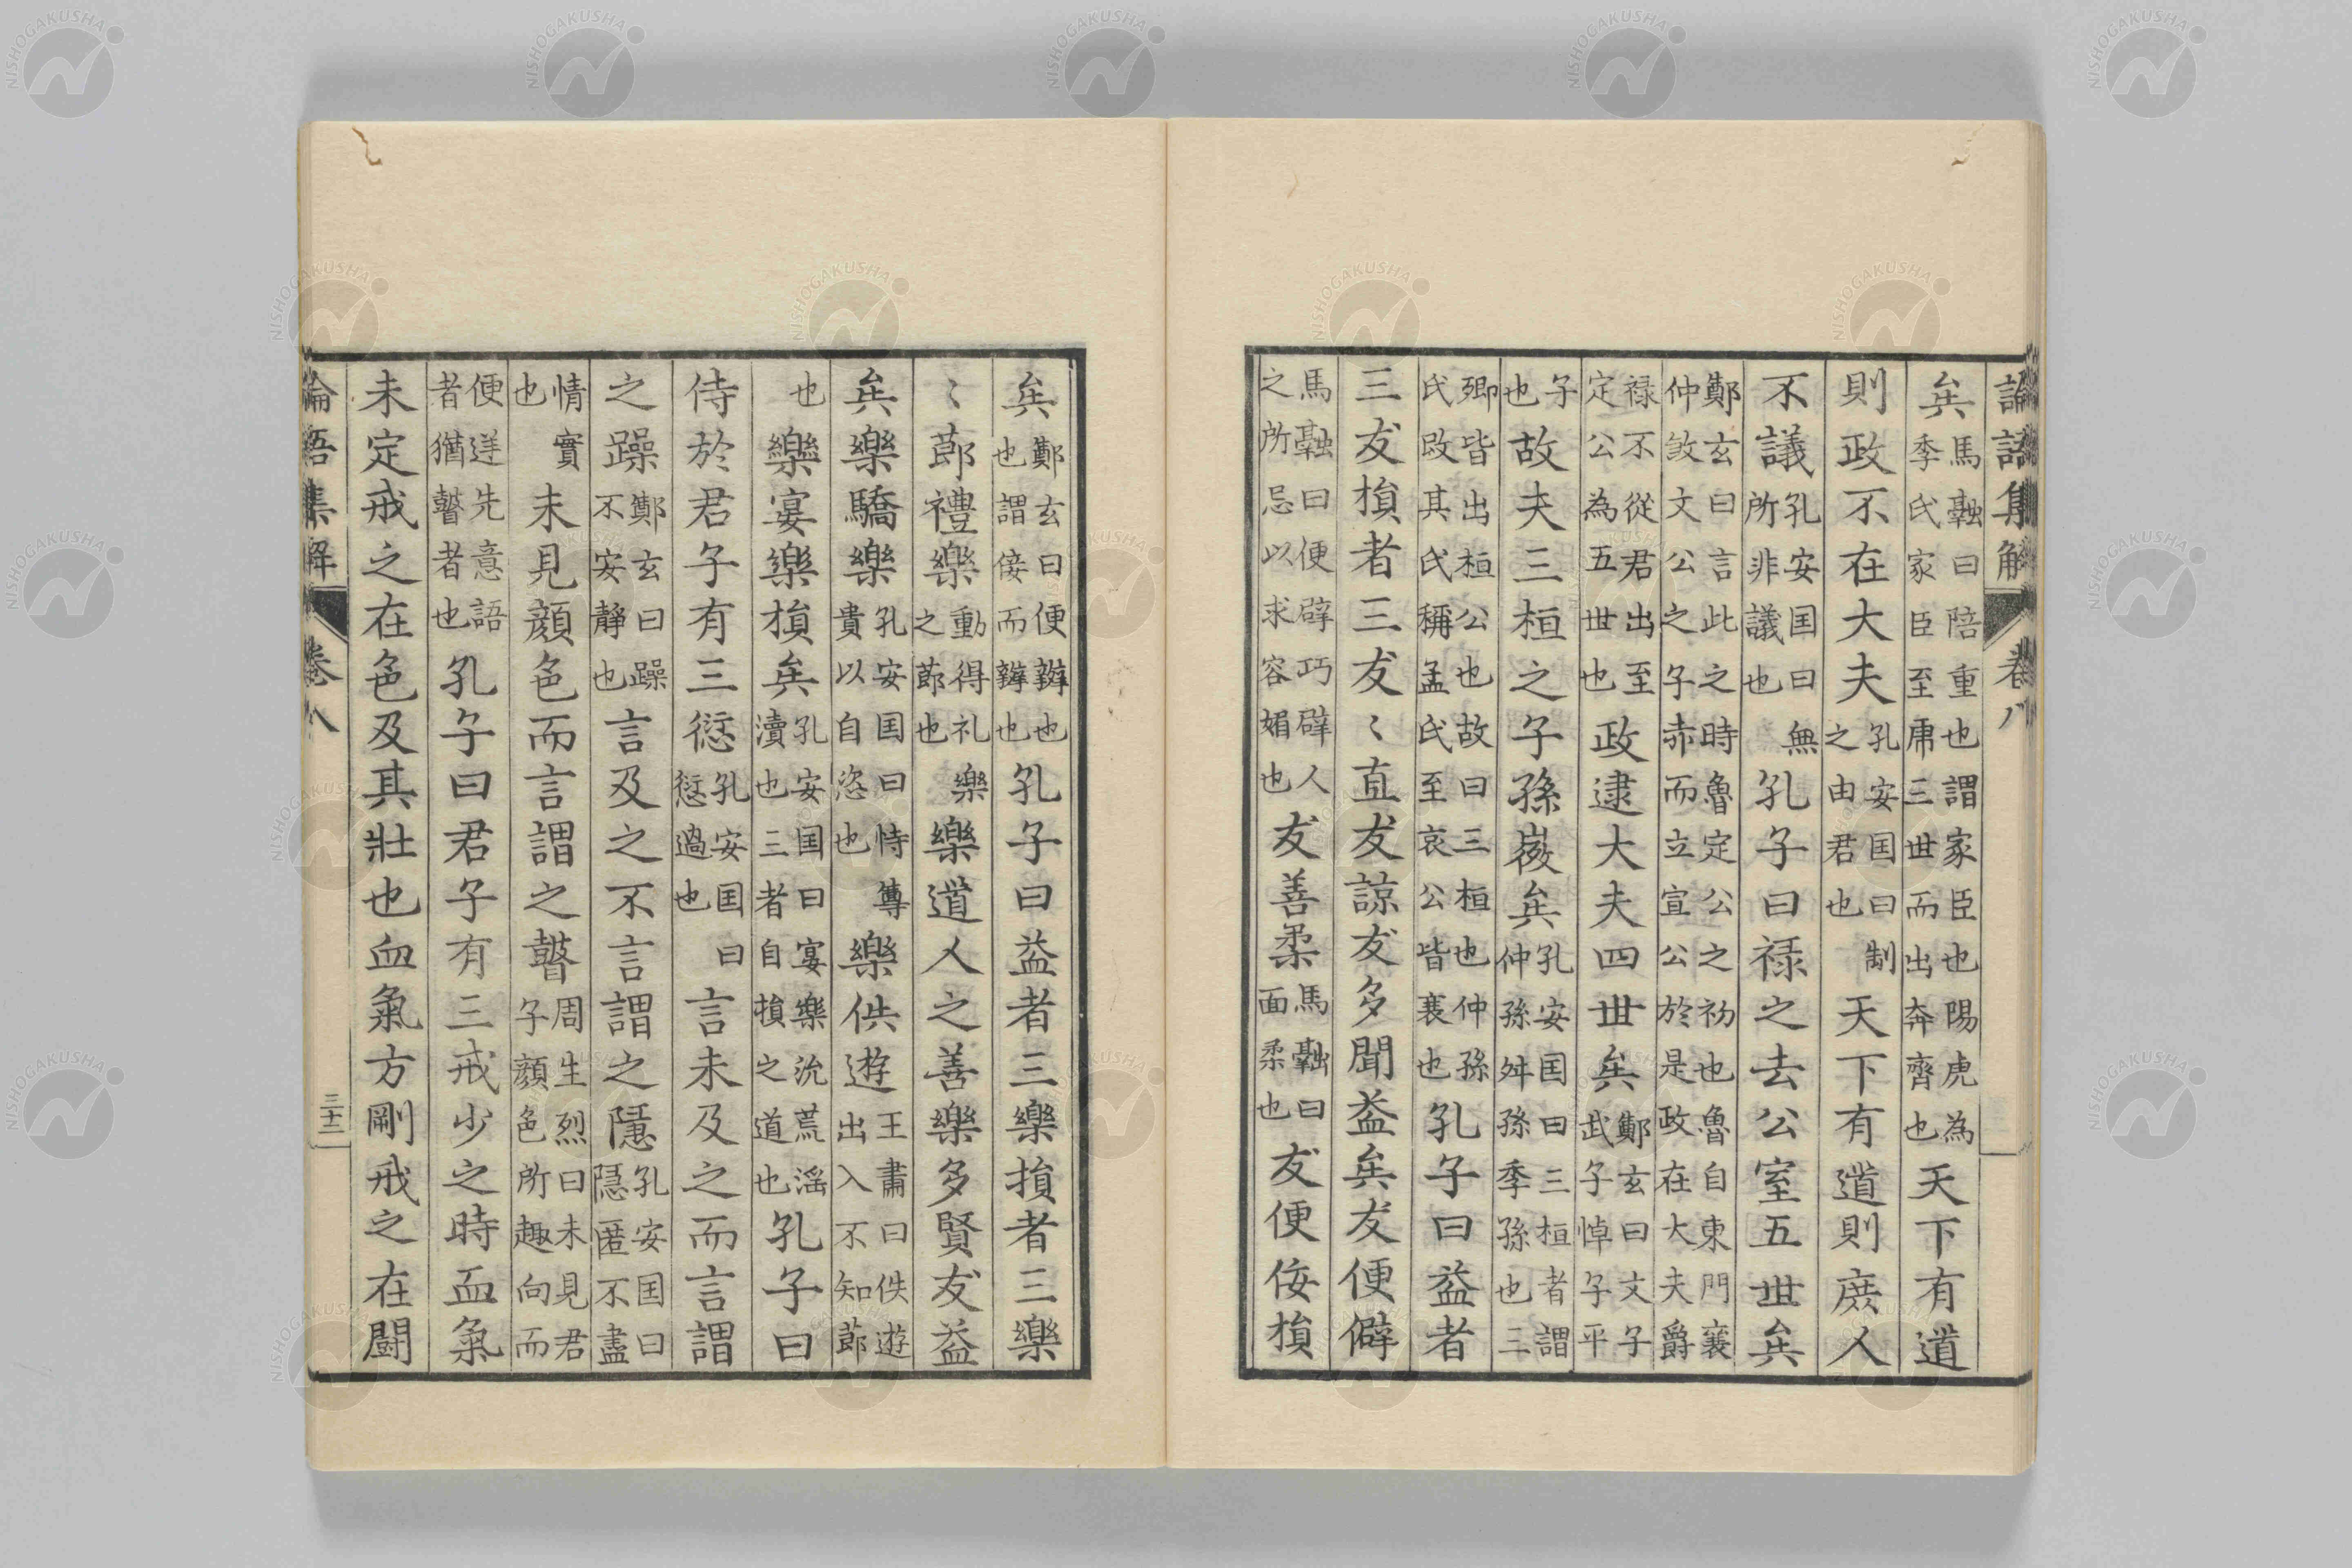 論語集解 卷八
矣馬融曰陪重也謂家臣也陽虎為季氏家臣至虎三世而出奔齊也天下有道
則政不在大夫孔安囯曰制之由君也天下有道則庶人
不議孔安囯曰無所非議也孔子曰禄之去公室五世矣
鄭玄曰言此之時魯定公之初也魯自東門襄仲煞文公之子赤而立宣公於是政在大夫爵
禄不從君出至定公為五世也政逮大夫四世矣鄭玄曰文子武子悼子平
子也故夫三桓之子孫微矣孔安囯曰三桓者謂仲孫舛孫季孫也三
卿皆出桓公也故曰三桓也仲孫氏改其氏稱孟氏至哀公皆襄也孔子曰益者
三友損者三友〻直友諒友多聞益矣友便僻
馬融曰便辟巧辟人之所忌以求容媚也友善柔馬融曰面柔也友便佞損
矣鄭玄曰便辯也謂佞而辯也孔子曰益者三樂損者三樂
〻節禮樂動得礼樂之節也樂道人之善樂多賢友益
矣樂驕樂孔安囯曰恃尊貴以自恣也樂佚遊王肅曰佚遊出入不知節
也樂宴樂損矣孔安囯曰宴樂沉荒滛瀆也三者自損之道也孔子曰
侍於君子有三愆孔安囯曰愆過也言未及之而言謂
之躁鄭玄曰躁不安靜也言及之不言謂之隱孔安囯曰隱匿不盡
情實也未見顏色而言謂之瞽周生烈曰未見君子顏色所趣向而
便逆先意語者猶瞽者也孔子曰君子有三戒少之時血氣
未定戒之在色及其壯也血氣方剛戒之在鬪
論語集解 卷八 三十二
NISHOGAKUSHA